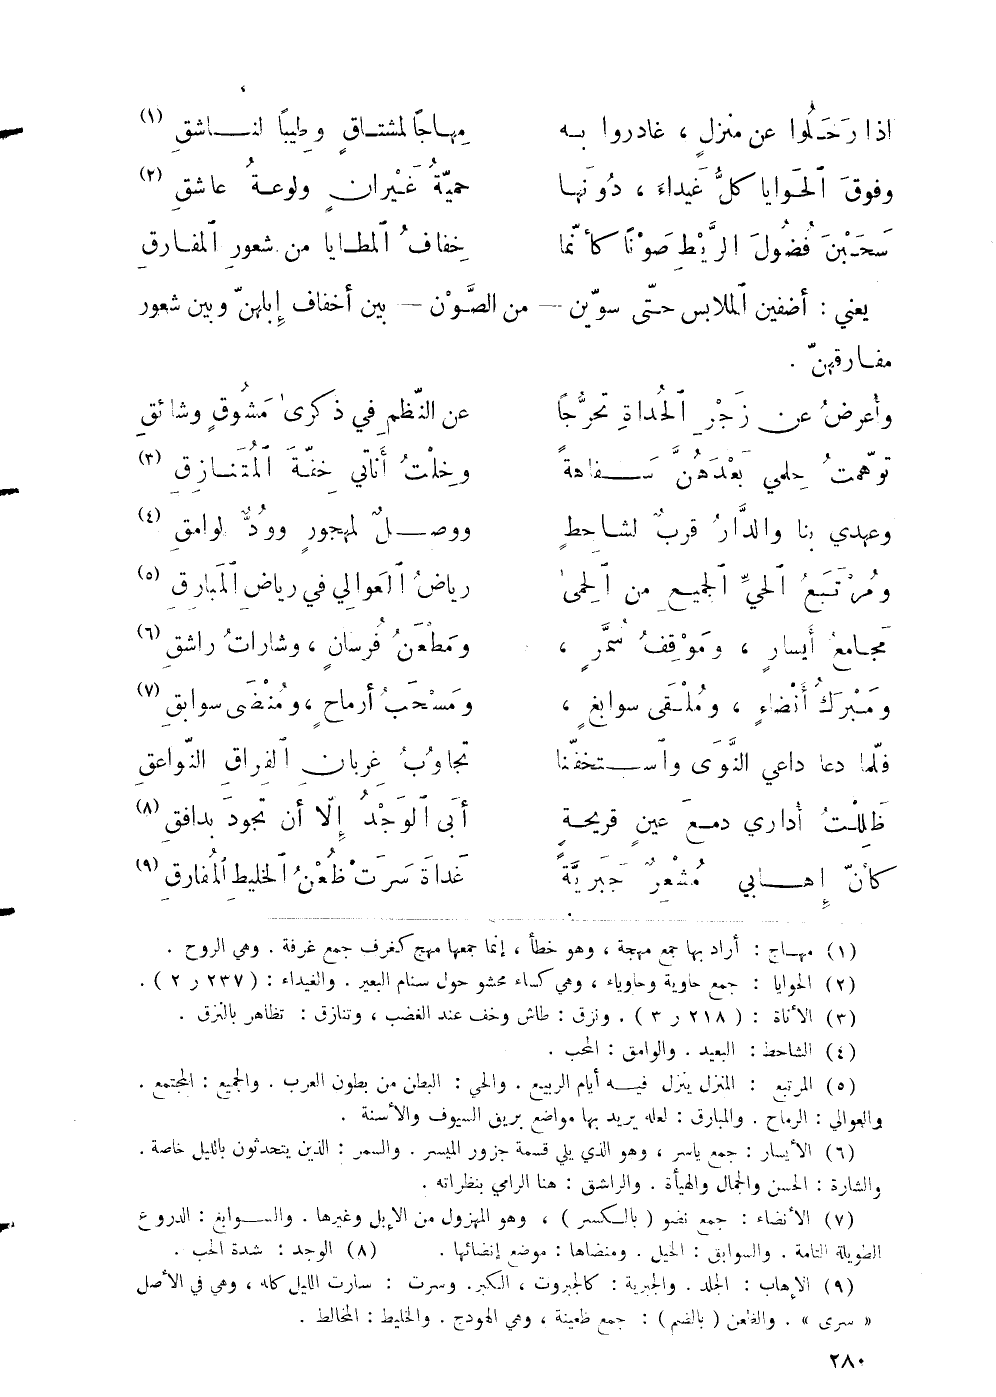 اذا رَحَلُوا عن منزلٍ ، غادروا به مِهاجًا لمشتاقٍ وطِيبًا لناشقِ (١)
وفوقَ ٱلحَوايا كلُّ غَيداءَ ، دُونَها حميّةُ غَيْرانٍ ولوعةُ عاشقِ (٢)
سَحَبْنَ فُضُولَ الرَّيْطِ صَوْنًا كأنّما خِفافُ ٱلمطايا من شعورِ ٱلمفارقِ
يعني : أضفين ٱلملابس حتّى سوّين — من الصَّوْن — بين أخفاف إِبلهنّ وبين شعور
مفارقهنّ .
وأَعرضُ عن زَجْرِ ٱلحُداةِ تحرُّجًا عن النّظمِ في ذكرىٰ مَشُوقٍ وشائقِ
توّهمتُ حِلمي بَعْدَهُنَّ سَفاهةً وخِلْتُ أَناتي خفّةَ ٱلمُتَنازقِ (٣)
وعهدي بنا والدَّارُ قربٌ لشاحطٍ ووصلٌ لمهجورٍ وودٌّ لوامقِ (٤)
ومُرْتَبَعُ ٱلحيِّ ٱلجميعِ من ٱلحِمىٰ رياضُ ٱلعوالي في رياضِ ٱلمَبارقِ (٥)
مَجامعُ أَيسارٍ ، ومَوْقِفُ سُمَّرٍ ، ومَطْعَنُ فُرسانٍ ، وشاراتُ راشقِ (٦)
ومَبْرَكُ أَنْضاءٍ ، ومُلْقَى سوابغٍ ، ومَسْحَبُ أرماحٍ ، ومُنْضَى سوابقِ (٧)
فلّما دعا داعي النَّوَى وٱستخفّنا تجاوُبُ غِربانِ ٱلفراقِ النّواعقِ
ظَلِلْتُ أداري دمعَ عينٍ قريحةٍ أَبى ٱلوَجْدُ إِلّا أن تجودَ بدافقِ (٨)
كأنّ إِهابي مُشْعِرٌ جَبَريَّةً غَداةَ سَرَتْ ظُعْنُ ٱلخليطِ ٱلمُفارقِ (٩)
(١) مهاج : أراد بها جمع مهجة ، وهو خطأ ، إنما جمعها مهج كغرف جمع غرفة . وهي الروح .
(٢) الحوايا : جمع حاوية وحاوياء ، وهي كساء محشو حول سنام البعير . والغيداء : ( ٢٣٧ ر ٢ ) .
(٣) الأناة : ( ٢١٨ ر ٣ ) . ونزق : طاش وخف عند الغضب ، وتنازق : تظاهر بالنزق .
(٤) الشاحط : البعيد . والوامق : المحب .
(٥) المرتبع : المنزل ينزل فيه أيام الربيع . والحي : البطن من بطون العرب . والجميع : المجتمع .
والعوالي : الرماح . والمبارق : لعله يريد بها مواضع بريق السيوف والأسنة .
(٦) الأيسار : جمع ياسر ، وهو الذي يلي قسمة جزور الميسر . والسمر : الذين يتحدثون بالليل خاصة .
والشارة : الحسن والجمال والهيأة . والراشق : هنا الرامي بنظراته .
(٧) الأنضاء : جمع نضو ( بالكسر ) ، وهو المهزول من الإبل وغيرها . والسوابغ : الدروع
الطويلة التامة . والسوابق : الخيل . ومنضاها : موضع إنضائها . (٨) الوجد : شدة الحب .
(٩) الإهاب : الجلد . والجبرية : كالجبروت ، الكبر. وسرت : سارت الليل كله ، وهي في الأصل
« سرى » . والظعن ( بالضم ) : جمع ظعينة ، وهي الهودج . والخليط : المخالط .
٢٨٠